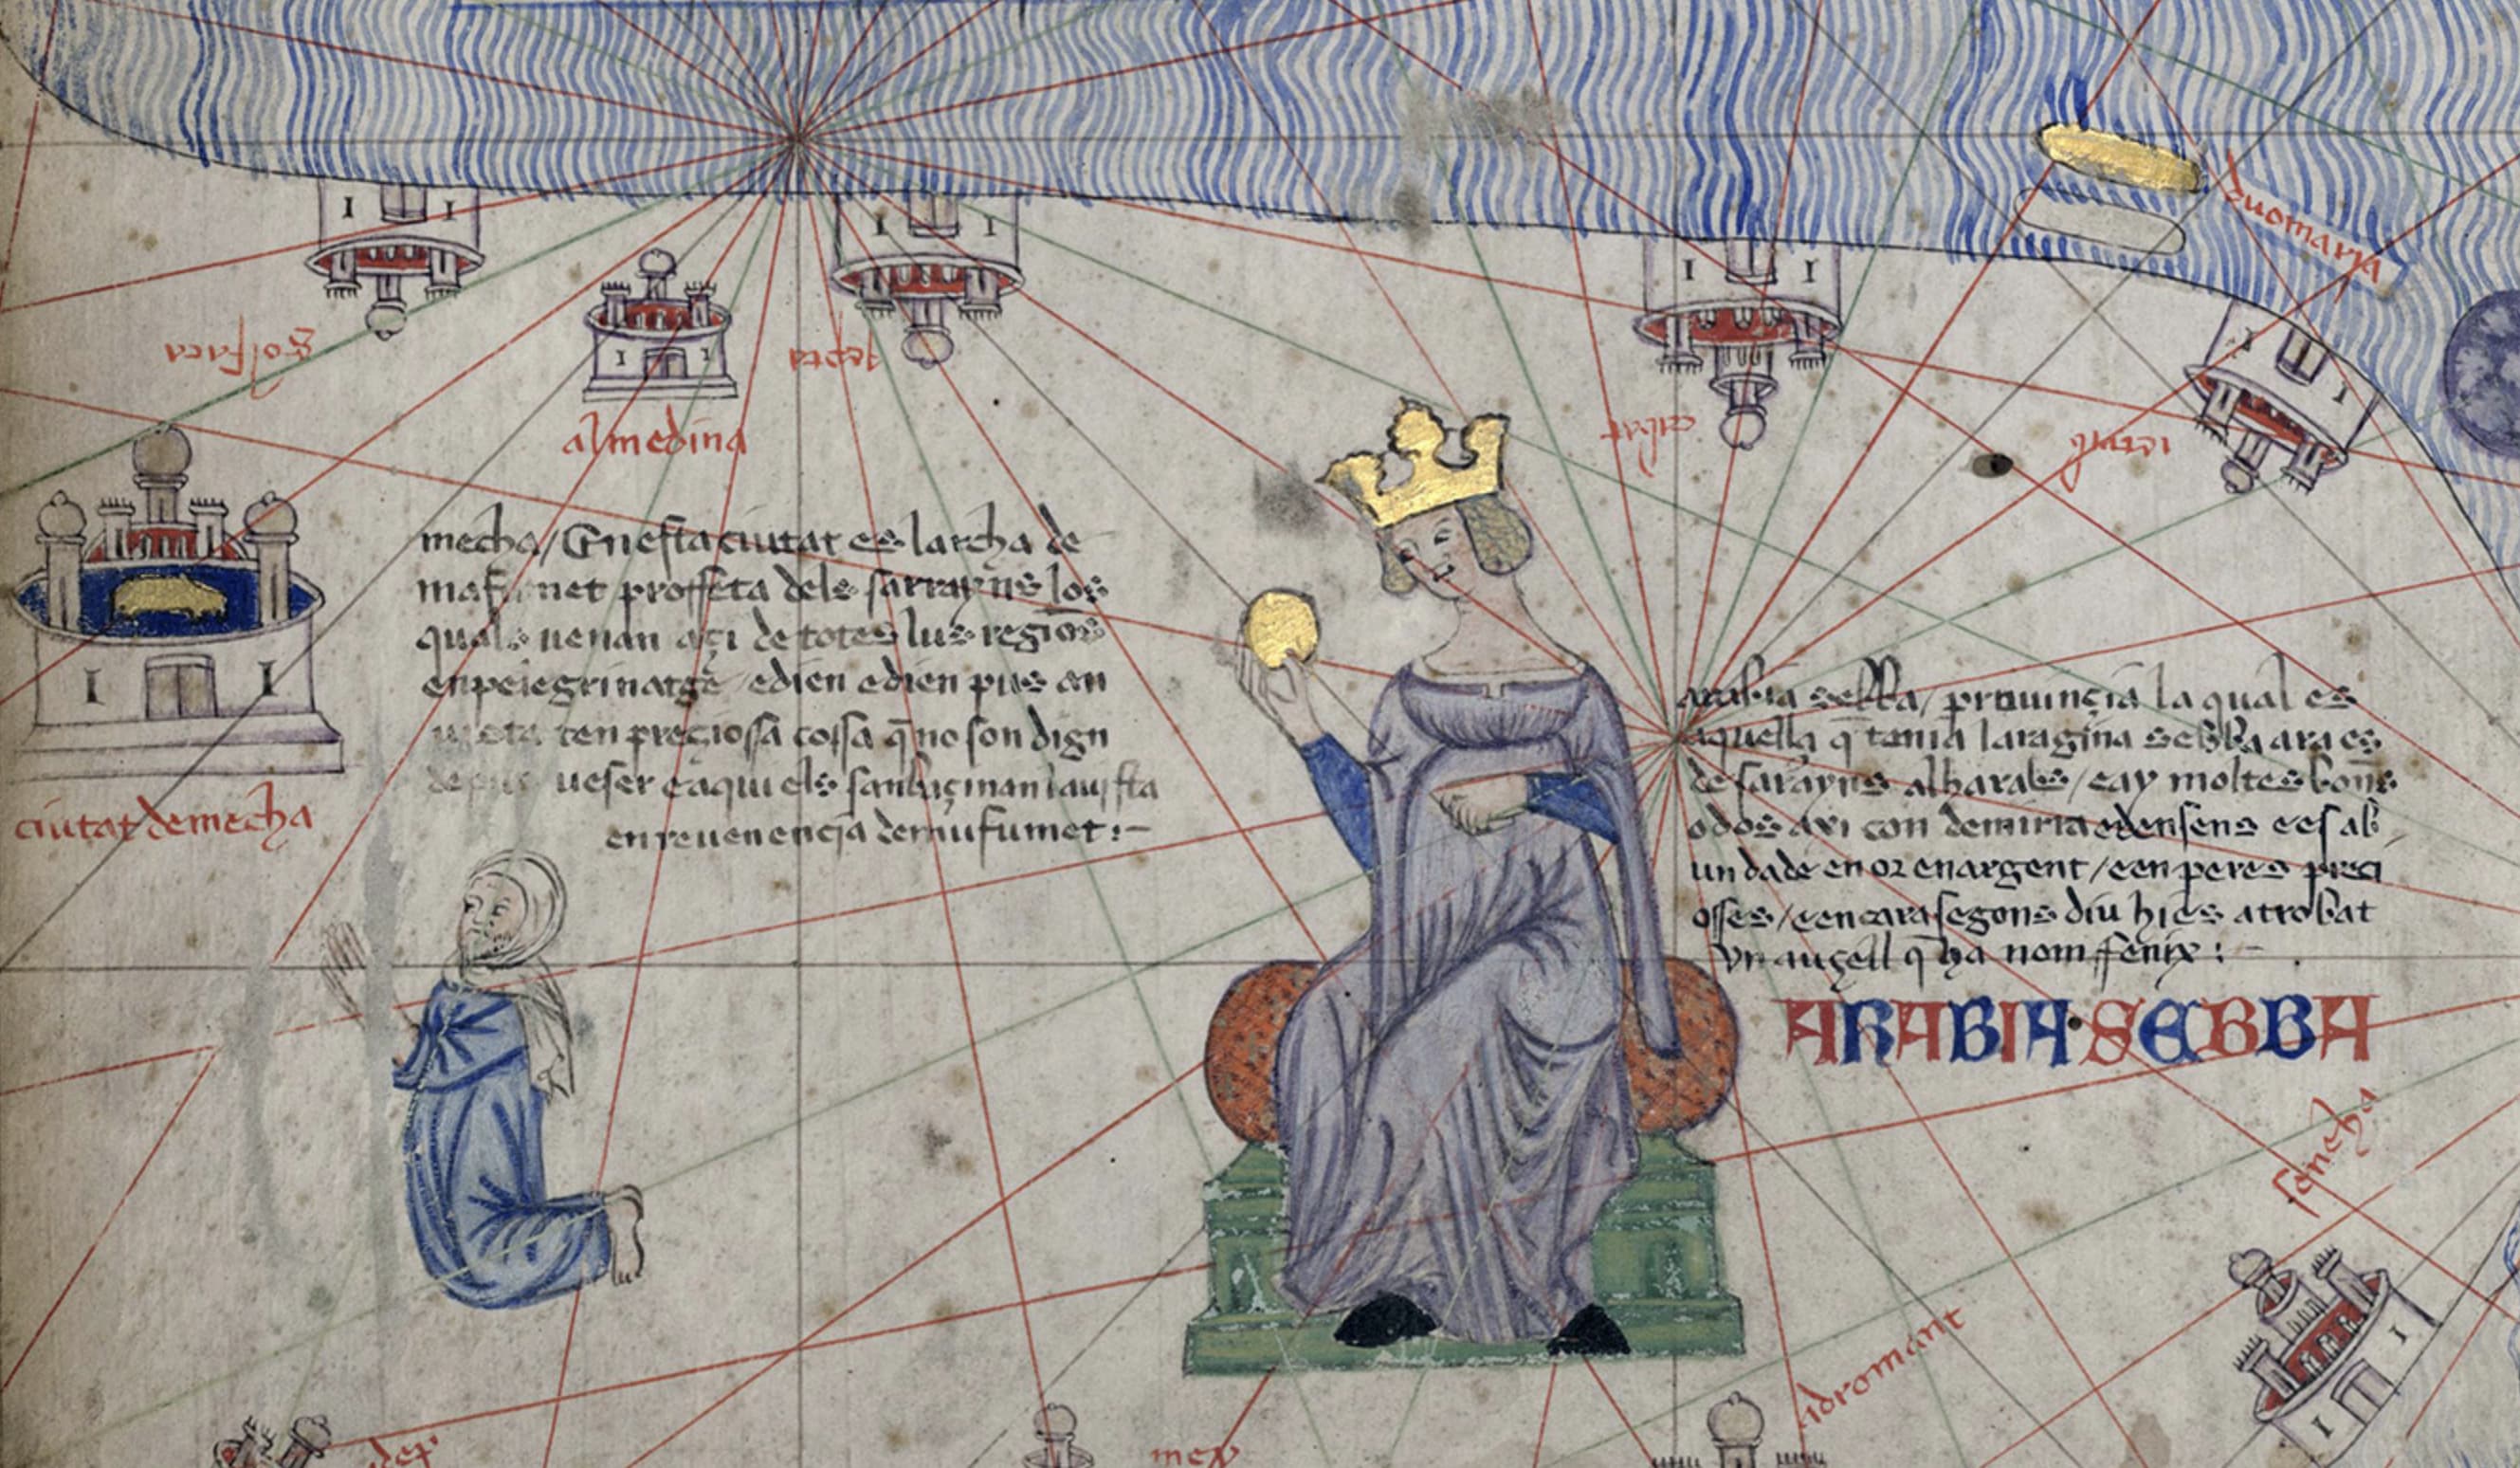 golfaca
almedina
serta
cabat
mecha / En esta ciutat es larcha de
mafumet proffeta dels sarrayns los
quals uenan açi de totes lus regios
en pelegrinatge edien edien pus an
ten preçiosa cossa q̄ no son dign
ueser e aqui els
en reuenencia de mafumet :-
ciutat de mecha
arabia sebba / prouinçia la qual es
aquella q̄ tania la ragina sebba ara es
de sarayns alharabs / e ay moltes bons
odos axi con de mirra e densens e es ab
undade en or en argent / e en peres preci
osses / e encara segons diu hi es atrobat
vn auçell q̄ ha nom ffenix : -
ARABIA SEBBA
adromant